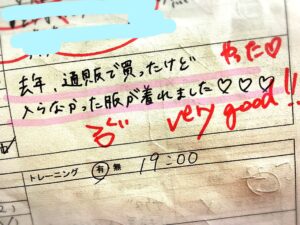 去年、通販で買ったけど
やった♡
入らなかった服が着れました♡♡♡
very good!!
トレーニング 有 無 19:00